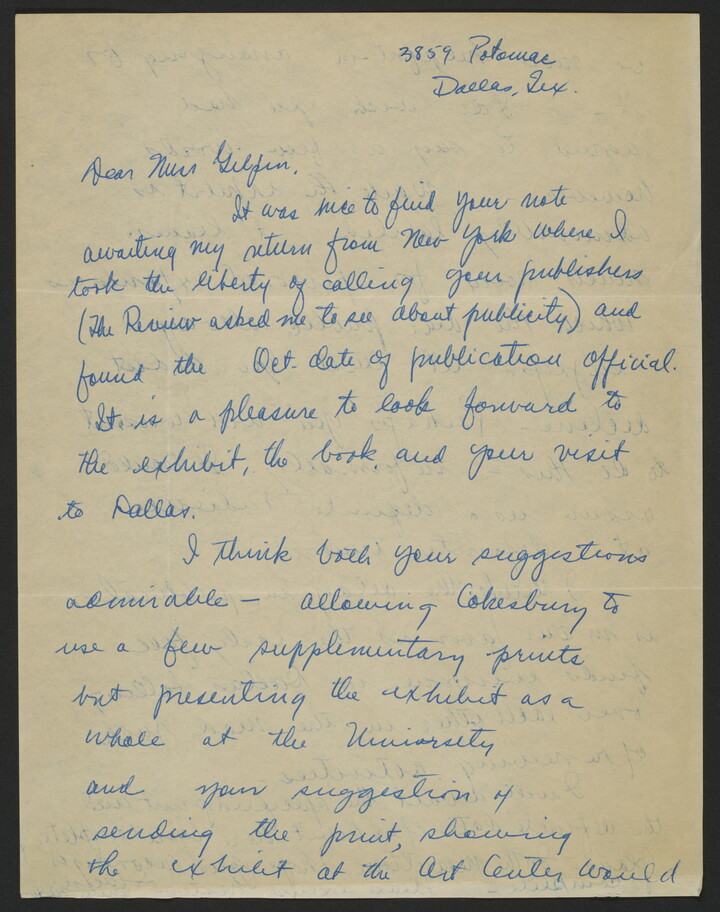 3859 Potomac
Dallas, Tex.
Dear Miss Gilpin,
It was nice to find your note
awaiting my return from New York where I
took the liberty of calling your publishers
(The Review asked me to see about publicity) and
found the Oct. date of publication official.
It is a pleasure to look forward to
the exhibit, the book, and your visit
to Dallas.
I think both your suggestions
admirable — allowing Cokesbury to
use a few supplementary prints
but presenting the exhibit as a
whole at the University
and your suggestion of
sending the print, showing
the exhibit at the Art Center would